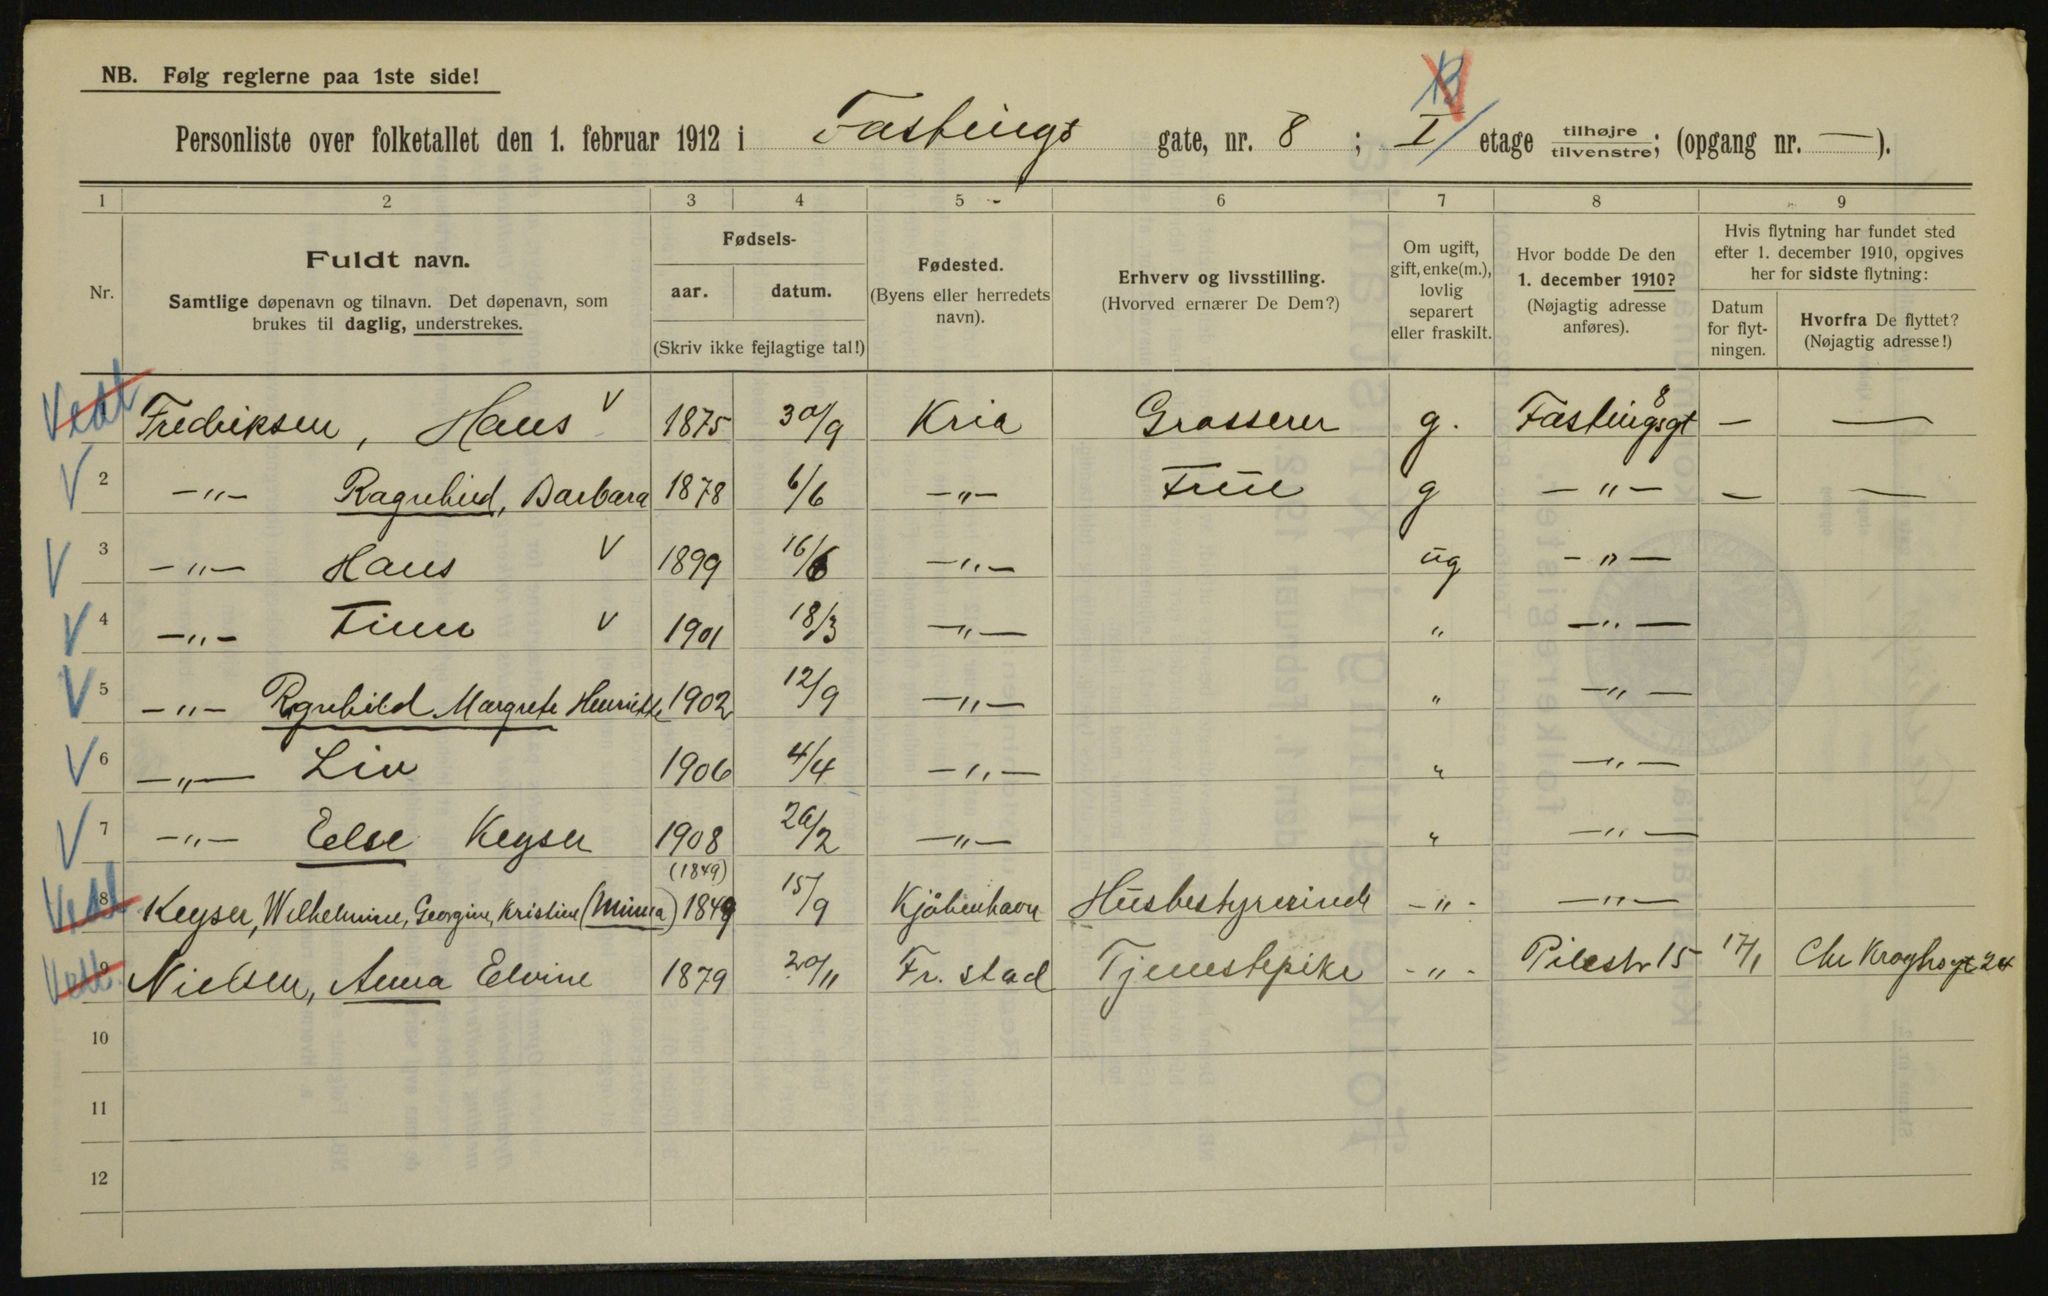 NB. Følg reglerne paa 1ste side!
Personliste over folketallet den 1. februar 1912 i Fastings gate, nr. 8 ; I/ etage tilhøjre tilvenstre; (opgang nr. — ).
1 2 3 4 5 6 7 8 9
Nr.
Fuldt navn.
Samtlige døpenavn og tilnavn. Det døpenavn, som
brukes til daglig, understrekes.
Fødsels-
aar. datum.
(Skriv ikke fejlagtige tal!)
Fødested.
(Byens eller herredets
navn).
Erhverv og livsstilling.
(Hvorved ernærer De Dem?)
Om ugift,
gift, enke(m.),
lovlig
separert
eller fraskilt.
Hvor bodde De den
1. december 1910?
(Nøjagtig adresse
anføres).
Hvis flytning har fundet sted
efter 1. december 1910, opgives
her for sidste flytning:
Datum
for flyt-
ningen.
Hvorfra De flyttet?
(Nøjagtig adresse!)
Fredriksen, Hans V 1875 30/9 Kria Grosserer g. Fastingsgt 8 — —
V 2 —"— Ragnhild, Barbara 1878 6/6 —"— Frue g —"— — —
V 3 —"— Hans V 1899 16/6 —"— ug —"—
V 4 —"— Finn V 1901 18/3 —"— " —"—
V 5 —"— Rgnhild Margrete Henriette 1902 12/9 —"— " —"—
V 6 —"— Liv 1906 4/4 —"— " —"—
V 7 —"— Else Keyser 1908 /2 —"— " —"—
(1849)
8 Keyser, Wilhelmine, Georgine, Kristine (Minna) 1849 15/9 Kjøbenhavn Husbestyrerinde —"— —"—
9 Nielsen, Anna Elvine 1879 20/11 Fr. stad Tjenestepike —"— Pilestr 15 17/1 Chr Kroghsgt 24
10
11
12